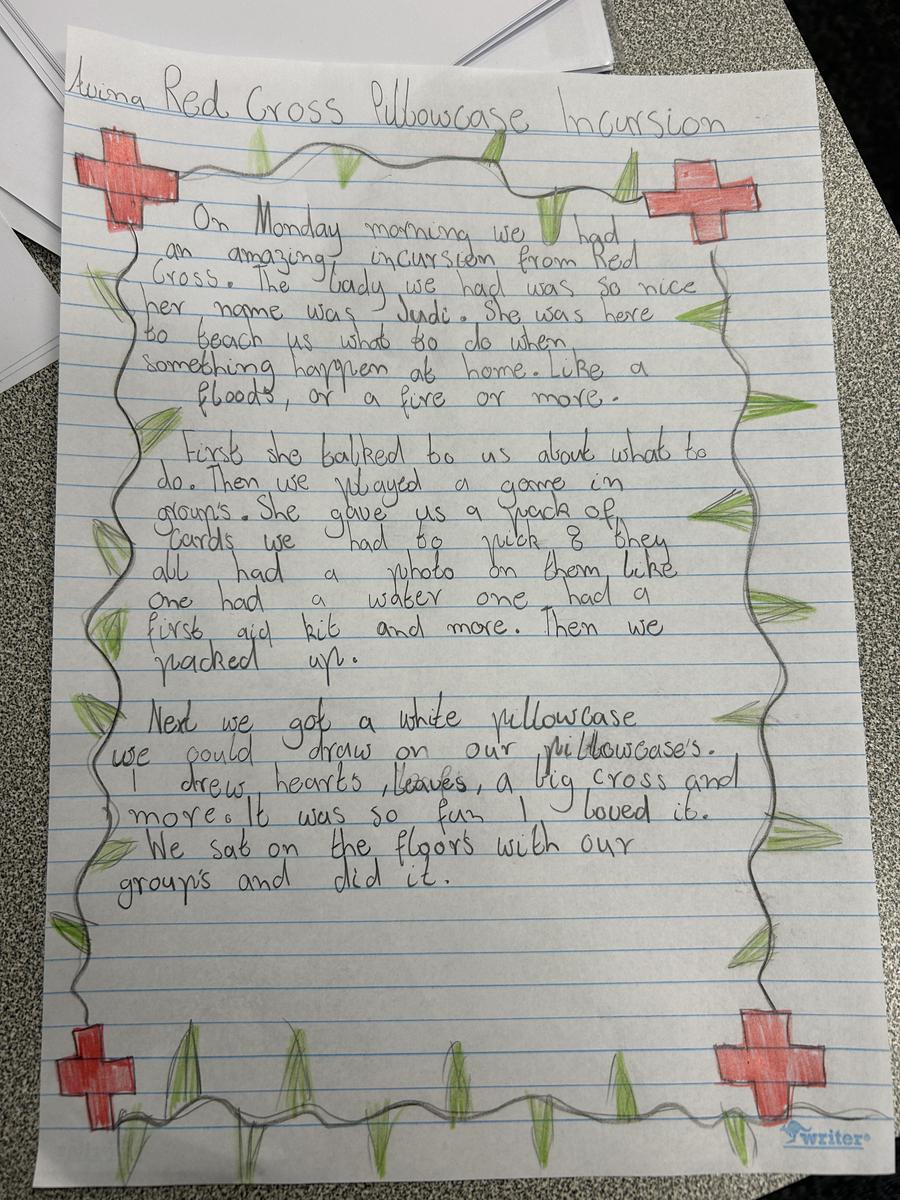 Awina Red Cross Pillowcase Incursion
On Monday morning we had
an amazing incursion from Red
Cross. The Lady we had was so nice
her name was Judi. She was here
to teach us what to do when
something happen at home. Like a
floods, or a fire or more.
First she talked to us about what to
do. Then we played a game in
group's. She gave us a pack of
Cards we had to pick 8 they
all had a photo on them, like
one had a water one had a
first aid kit and more. Then we
packed up.
Next we got a white pillowcase
we could draw on our pillowcase's.
I drew hearts, leaves, a big cross and
more. It was so fun I loved it.
We sat on the floors with our
group's and did it.
writer